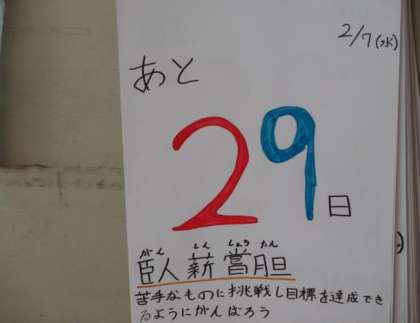 2/7(水)
あと
29日
がん しん しょう たん
臥薪嘗胆
苦手なものに挑戦し目標を達成でき
るようにがんばろう